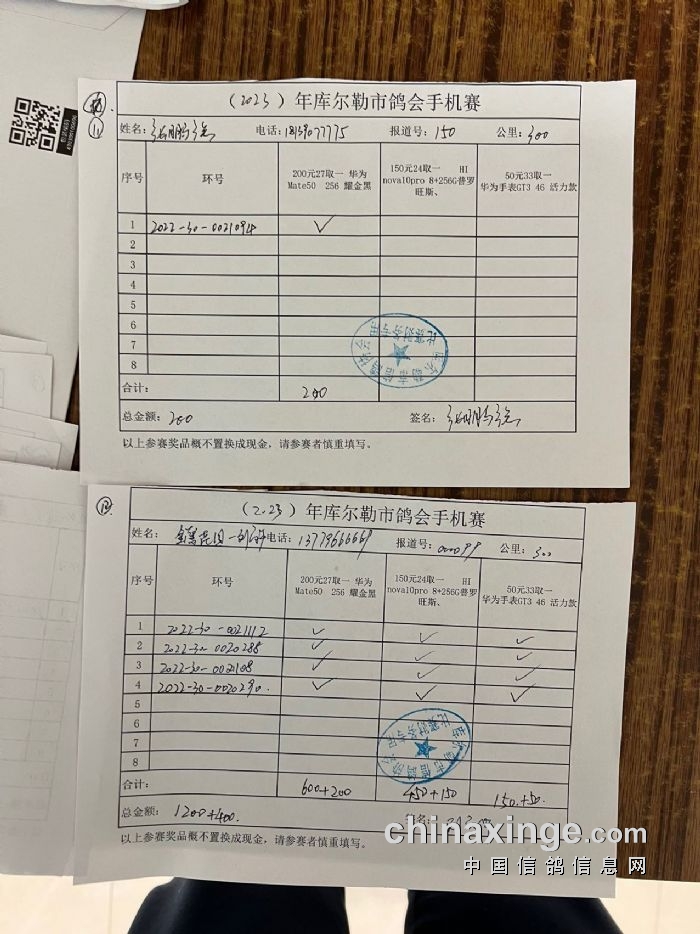 11
（2023）年库尔勒市鸽会手机赛
姓名： 电话：18139077775 报道号：150 公里：300
序号 环号 200元27取一 华为Mate50 256 耀金黑 150元24取一 HI nova10pro 8+256G普罗旺斯、 50元33取一 华为手表GT3 46 活力款
1 2022-30-0021094 ✓
2
3
4
5
6
7
8
合计： 200
总金额：200 签名：
以上参赛奖品概不置换成现金，请参赛者慎重填写。
12
（2023）年库尔勒市鸽会手机赛
姓名： 电话：13779666669 报道号：000099 公里：300
序号 环号 200元27取一 华为Mate50 256 耀金黑 150元24取一 HI nova10pro 8+256G普罗旺斯、 50元33取一 华为手表GT3 46 活力款
1 2022-30-0021112 ✓ ✓ ✓
2 2022-30-0020288 ✓ ✓ ✓
3 2022-30-0021108 ✓ ✓ ✓
4 2022-30-0020290. ✓ ✓ ✓
5
6
7
8
合计： 600+200 450+150 150+50.
总金额：1200+400.
以上参赛奖品概不置换成现金，请参赛者慎重填写。
chinaxinge.com
中国信鸽信息网